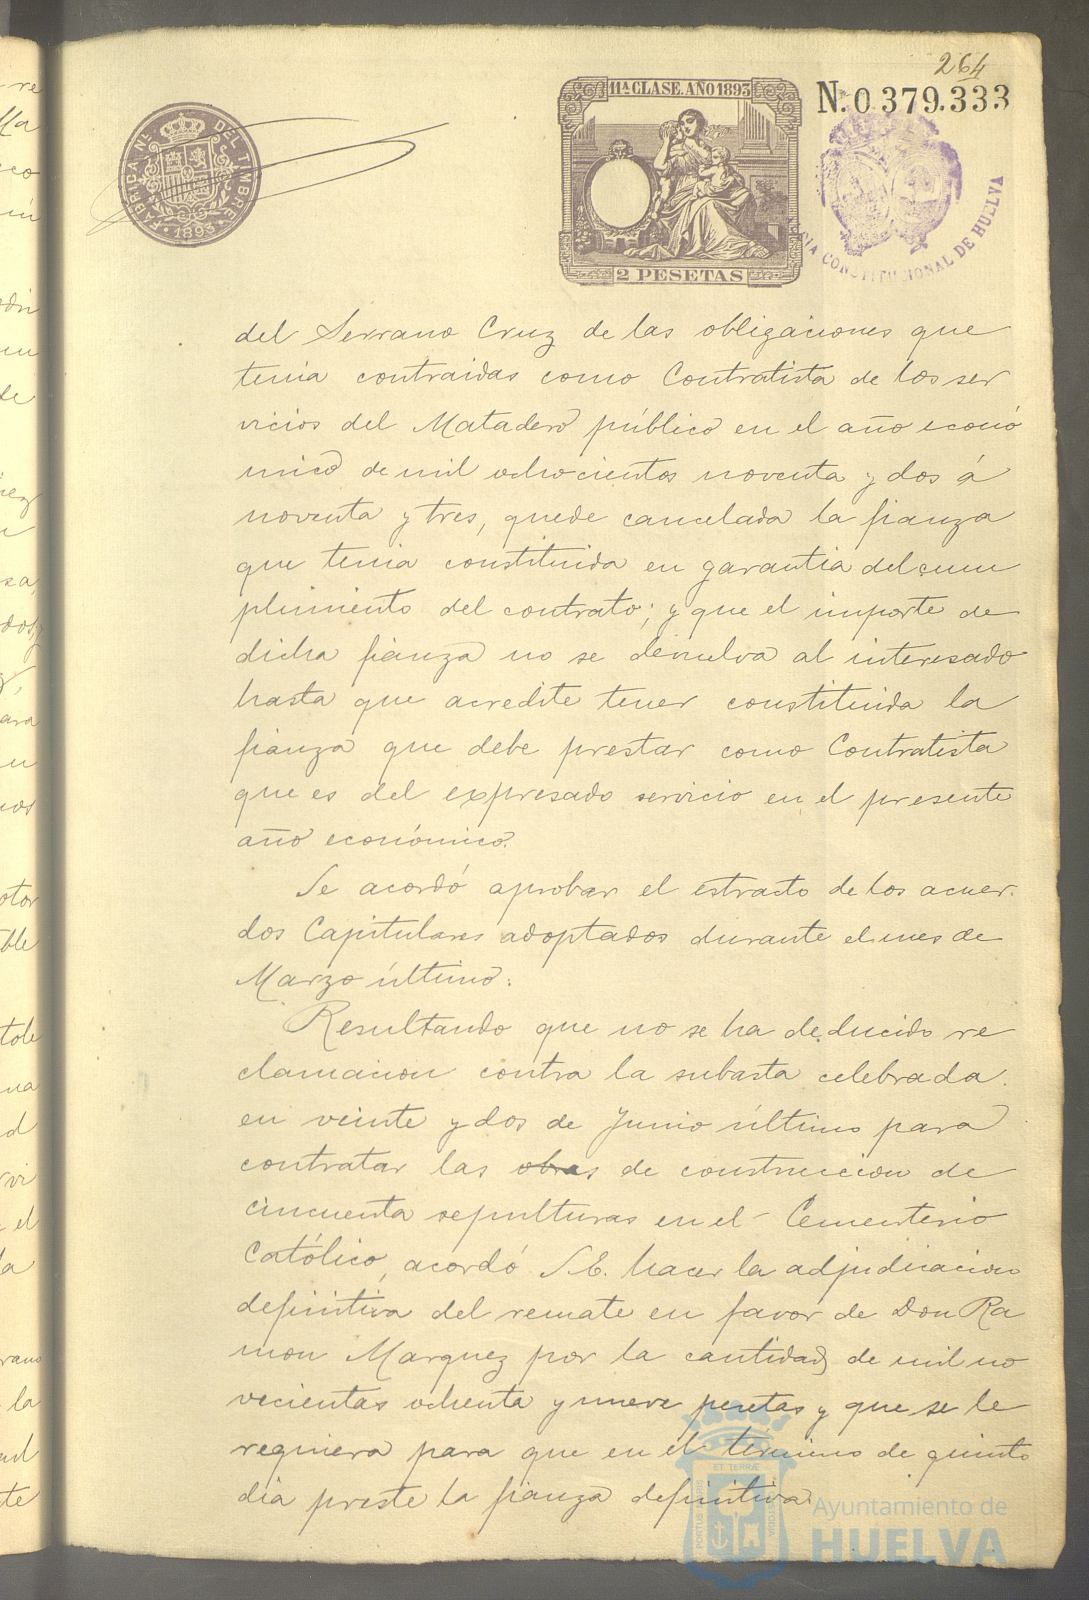 264
11ª CLASE. AÑO 1893
Nº. 0.379.333
FABRICA NL. DEL TIMBRE
1893
2 PESETAS
CONSTITUCIONAL DE HUELVA
del Serrano Cruz de las obligaciones que
tenia contraidas como Contratista de los ser
vicios del Matadero público en el año econó
mico de mil ochocientos noventa y dos á
noventa y tres, quede cancelada la fianza
que tenia constituida en garantia del cum
plimiento del contrato; y que el importe de
dicha fianza no se devuelva al interesado
hasta que acredite tener constituida la
fianza que debe prestar como Contratista
que es del expresado servicio en el presente
año económico.
Se acordó aprobar el estracto de los acuer-
dos Capitulares adoptados durante el mes de
Marzo último.
Resultando que no se ha deducido re
clamacion contra la subasta celebrada
en veinte y dos de Junio último para
contratar las obras de construccion de
cincuenta sepulturas en el Cementerio
Católico, acordó S.E. hacer la adjudicacion
definitiva del remate en favor de Don Ra
mon Marquez por la cantidad de mil no
vecientas ochenta y nueve pesetas y que se le
requiera para que en el termino de quinto
dia preste la fianza definitiva.
PORTUS MARIS ET TERRÆ CUSTODIA
Ayuntamiento de
HUELVA